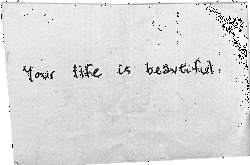 Your life is beautiful.